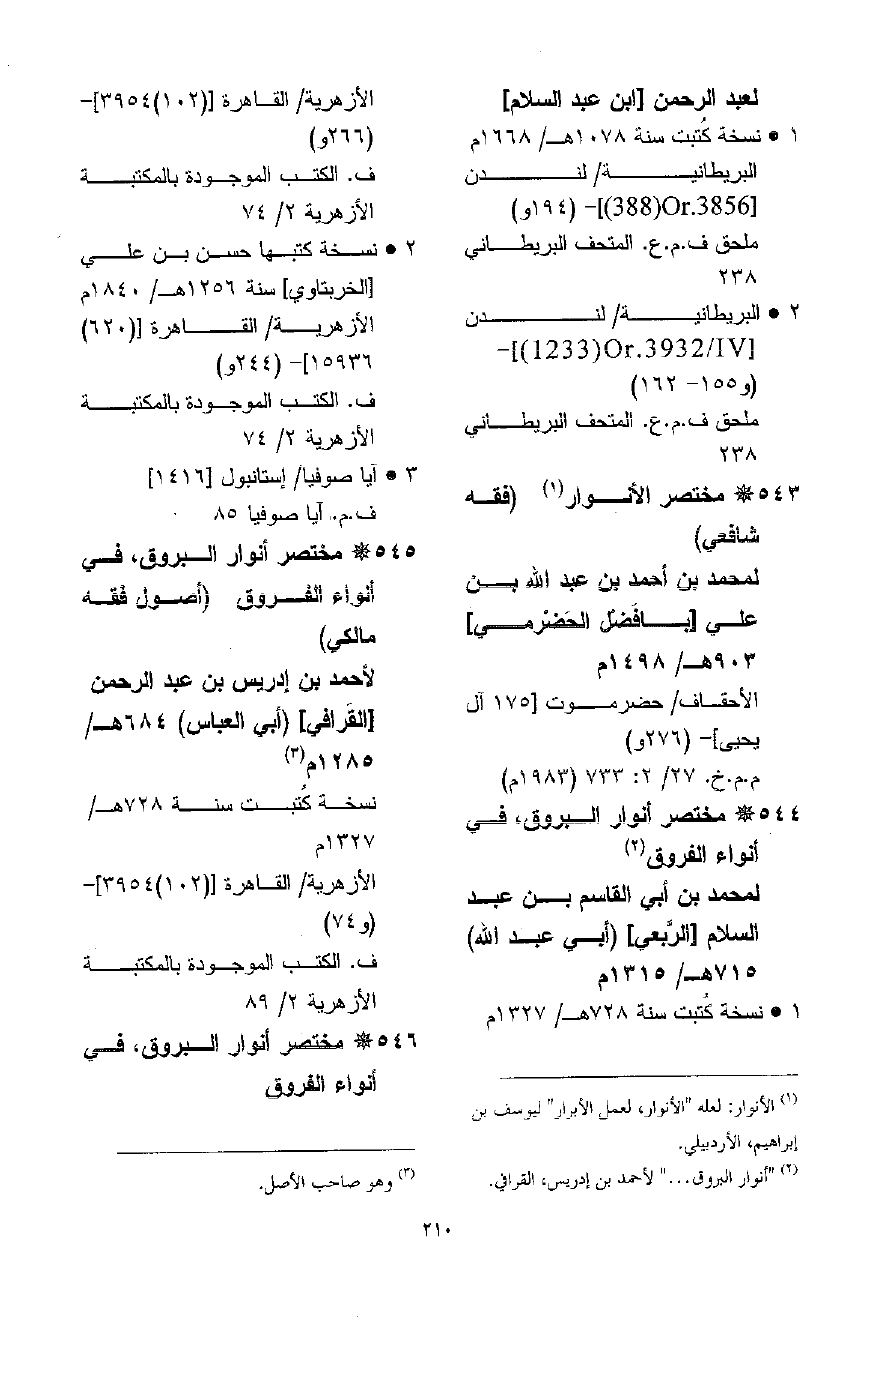 لعبد الرحمن [ابن عبد السلام]
١ • نسخة كُتبت سنة ١٠٧٨هـ/ ١٦٦٨م
البريطانية/ لندن
[Or.3856(388)]- (١٩٤و)
ملحق ف.م.ع. المتحف البريطاني
٢٣٨
٢ • البريطانية/ لندن
[Or.3932/IV(1233)]-
(و١٥٥- ١٦٢)
ملحق ف.م.ع. المتحف البريطاني
٢٣٨
٥٤٣ ❋ مختصر الأنوار(١) (فقه
شافعي)
لمحمد بن أحمد بن عبد الله بن
علي [بافَضْل الحَضْرمي]
٩٠٣هـ/ ١٤٩٨م
الأحقاف/ حضرموت [١٧٥ آل
يحيى]- (٢٧٦و)
م.م.خ. ٢٧/ ٢: ٧٣٣ (١٩٨٣م)
٥٤٤ ❋ مختصر أنوار البروق، في
أنواء الفروق(٢)
لمحمد بن أبي القاسم بن عبد
السلام [الرَّبعي] (أبي عبد الله)
٧١٥هـ/ ١٣١٥م
١ • نسخة كُتبت سنة ٧٢٨هـ/ ١٣٢٧م
(١) الأنوار: لعله "الأنوار، لعمل الأبرار" ليوسف بن
إبراهيم، الأردبيلي.
(٢) "أنوار البروق..." لأحمد بن إدريس، القرافي.
الأزهرية/ القاهرة [(١٠٢)٣٩٥٤]-
(٢٦٦و)
ف. الكتب الموجودة بالمكتبة
الأزهرية ٢/ ٧٤
٢ • نسخة كتبها حسن بن علي
[الخربتاوي] سنة ١٢٥٦هـ/ ١٨٤٠م
الأزهرية/ القاهرة [(٦٢٠)
١٥٩٣٦]- (٢٤٤و)
ف. الكتب الموجودة بالمكتبة
الأزهرية ٢/ ٧٤
٣ • آيا صوفيا/ إستانبول [١٤١٦]
ف.م. آيا صوفيا ٨٥
٥٤٥ ❋ مختصر أنوار البروق، في
أنواء الفُروق (أصول فُقه
مالكي)
لأحمد بن إدريس بن عبد الرحمن
[القَرافي] (أبي العباس) ٦٨٤هـ/
١٢٨٥م(٣)
نسخة كُتبت سنة ٧٢٨هـ/
١٣٢٧م
الأزهرية/ القاهرة [(١٠٢)٣٩٥٤]-
(و٧٤)
ف. الكتب الموجودة بالمكتبة
الأزهرية ٢/ ٨٩
٥٤٦ ❋ مختصر أنوار البروق، في
أنواء الفروق
(٣) وهو صاحب الأصل.
٢١٠